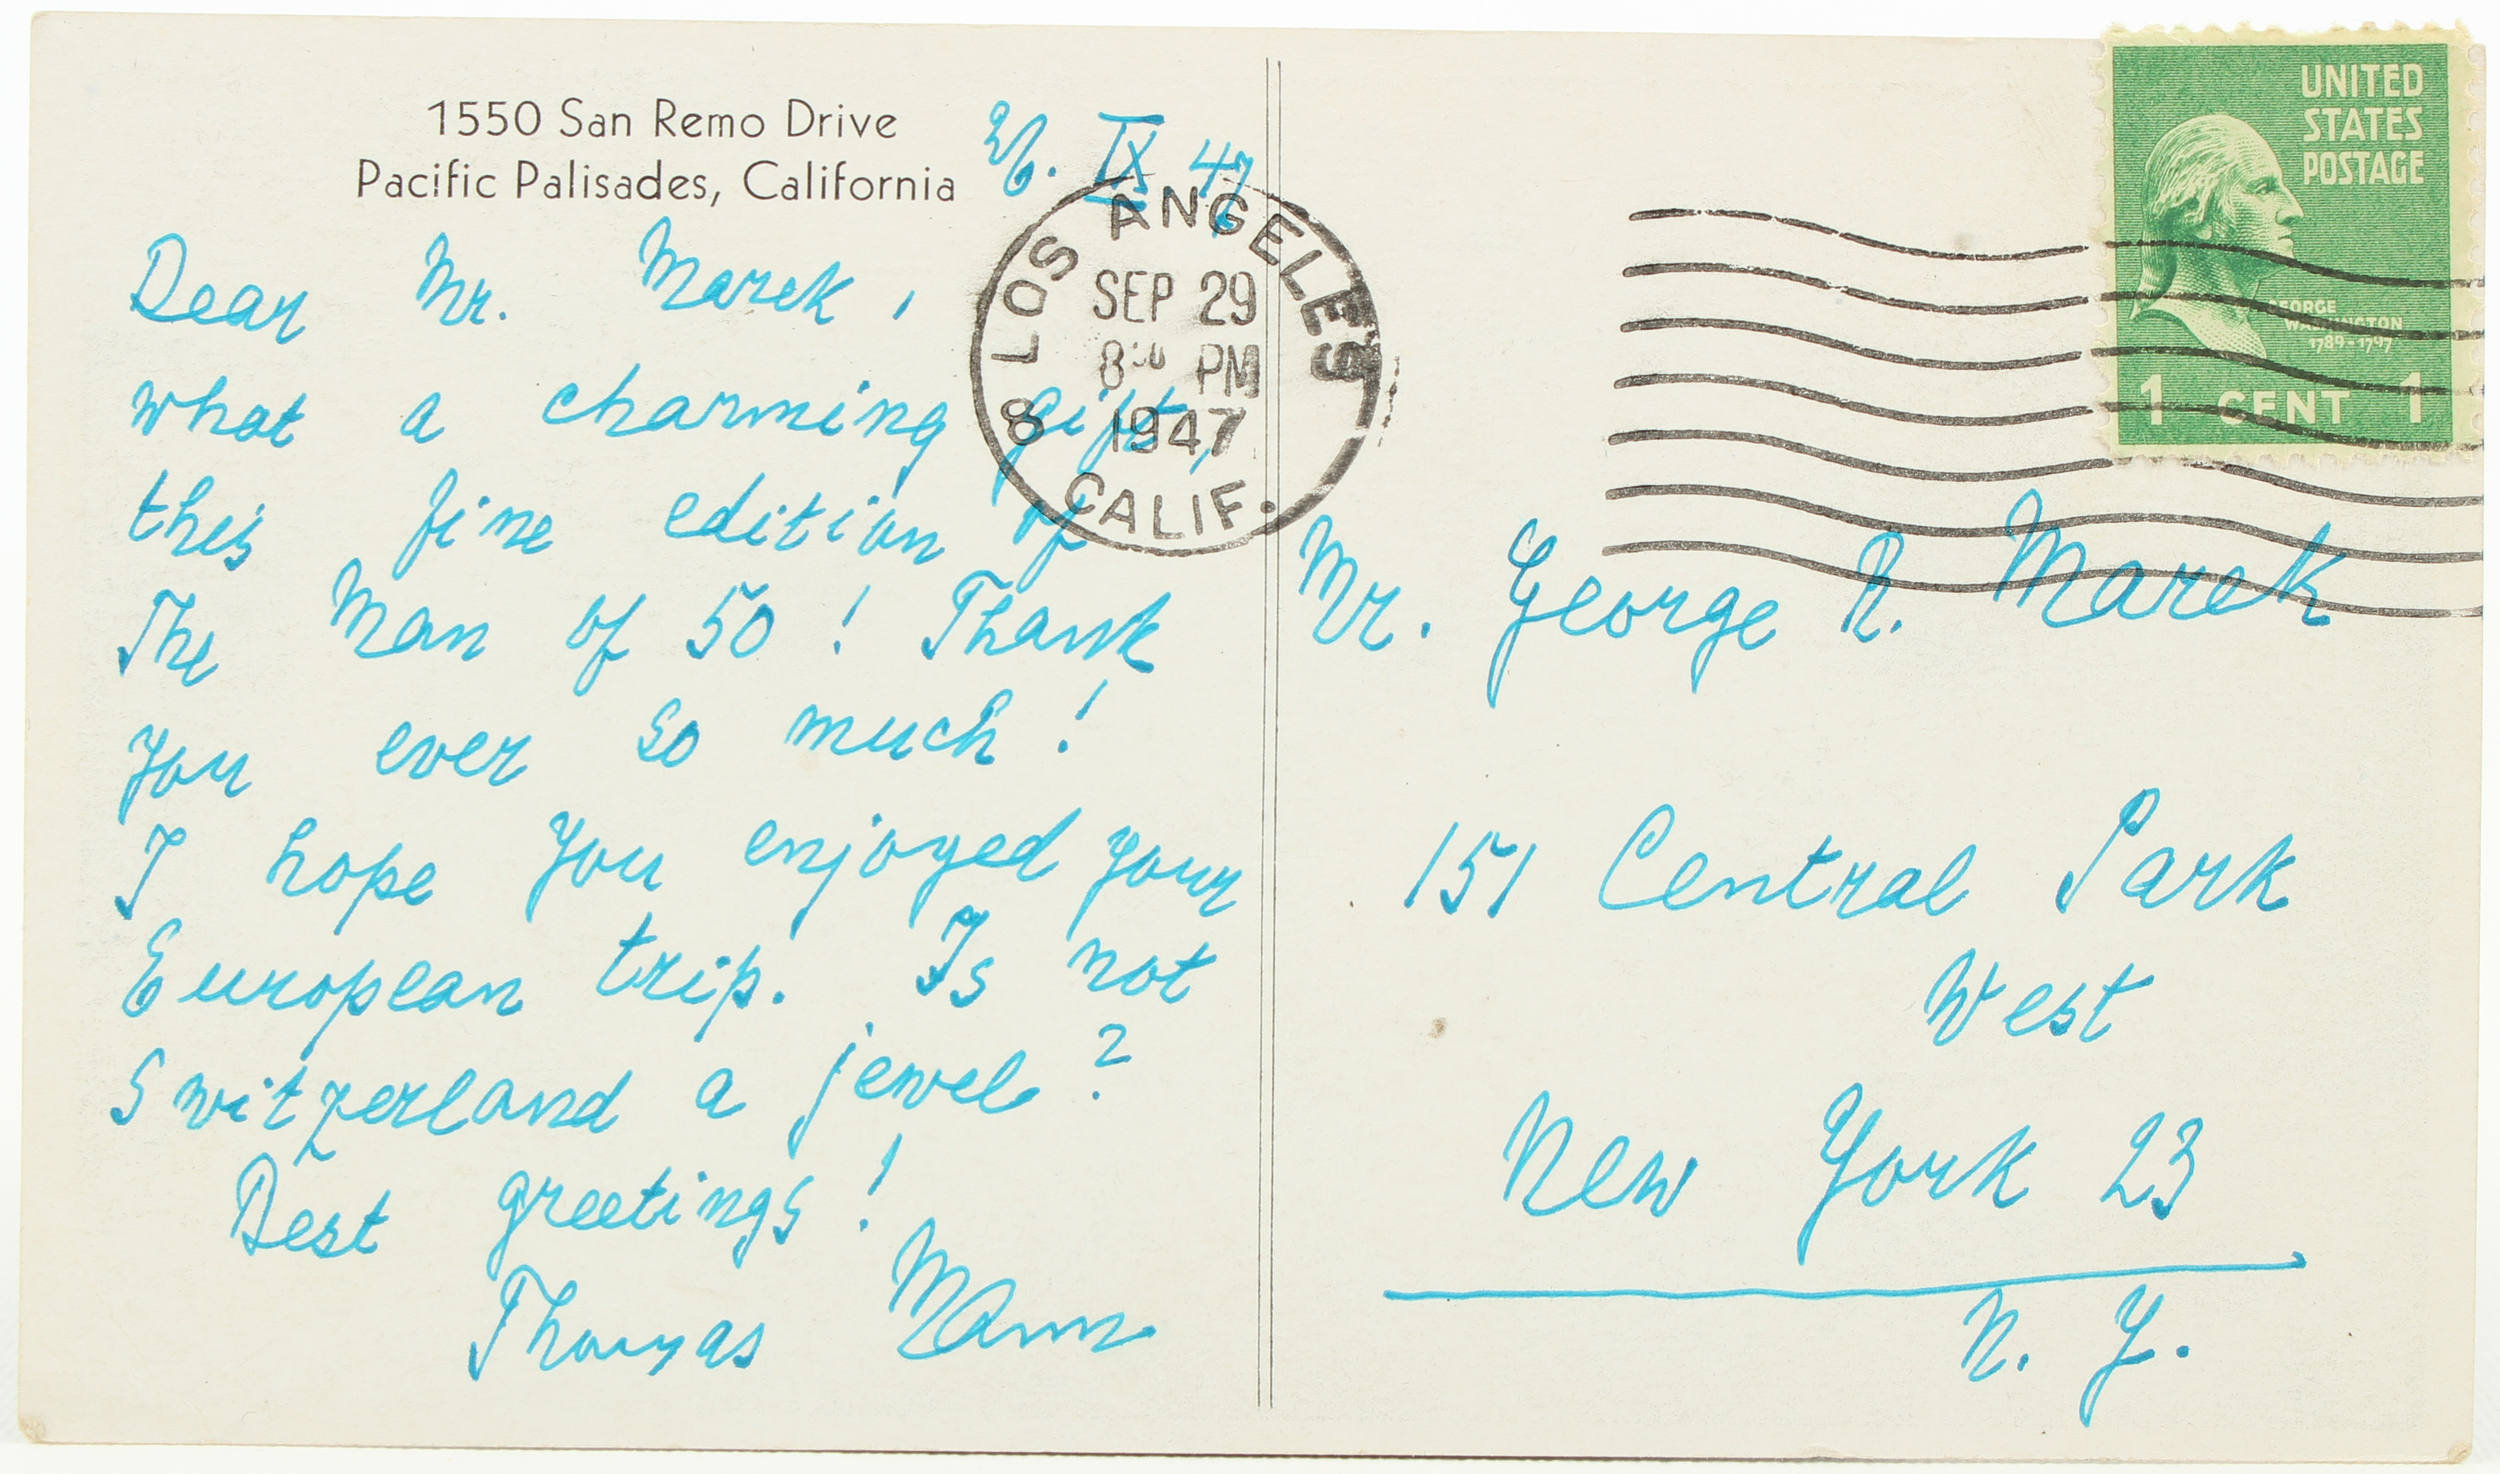 1550 San Remo Drive
Pacific Palisades, California
26. IX 47
Dear Mr. Marek,
what a charming gift,
this fine edition of
The Man of 50! Thank
you ever so much!
I hope you enjoyed your
European trip. Is not
Switzerland a jewel?
Best greetings!
Thomas Mann
LOS ANGELES 8
SEP 29
8 30 PM
1947
CALIF.
UNITED
STATES
POSTAGE
GEORGE
WASHINGTON
1789-1797
1 CENT 1
Mr. George R. Marek
151 Central Park
West
New York 23
N. Y.